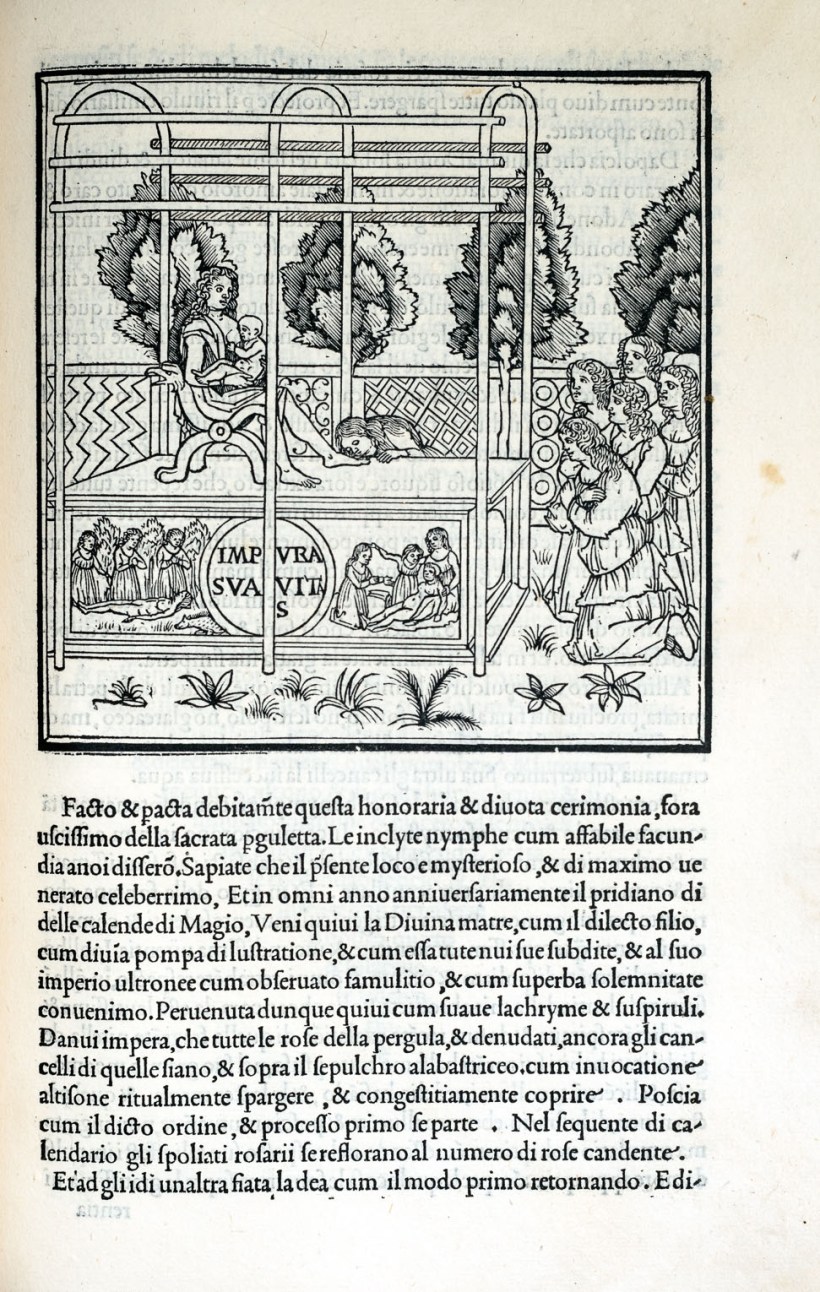 IMPVRA
SVAVITA
S
Facto & pacta debitam̃te queſta honoraria & diuota cerimonia, fora
uſciſſimo della ſacrata pguletta. Le inclyte nymphe cum affabile facun-
dia a noi diſſerõ. Sapiate che il p̃ſente loco e myſterioſo, & di maximo ue
nerato celeberrimo, Et in omni anno anniuerſariamente il pridiano di
delle calende di Magio, Veni quiui la Diuina matre, cum il dilecto filio,
cum diuĩa pompa di luſtratione, & cum eſſa tute nui ſue ſubdite, & al ſuo
imperio ultronee cum obſeruato famulitio, & cum ſuperba ſolemnitate
conuenimo. Peruenuta dunque quiui cum ſuaue lachryme & ſuſpiruli.
Da nui impera, che tutte le roſe della pergula, & denudati, ancora gli can-
celli di quelle ſiano, & ſopra il ſepulchro alabaſtriceo. cum inuocatione
altiſone ritualmente ſpargere, & congeſtitiamente coprire. Poſcia
cum il dicto ordine, & proceſſo primo ſe parte. Nel ſequente di ca-
lendario gli ſpoliati roſarii ſe reflorano al numero di roſe candente.
Et ad gli idi unaltra fiata la dea cum il modo primo retornando. E di-